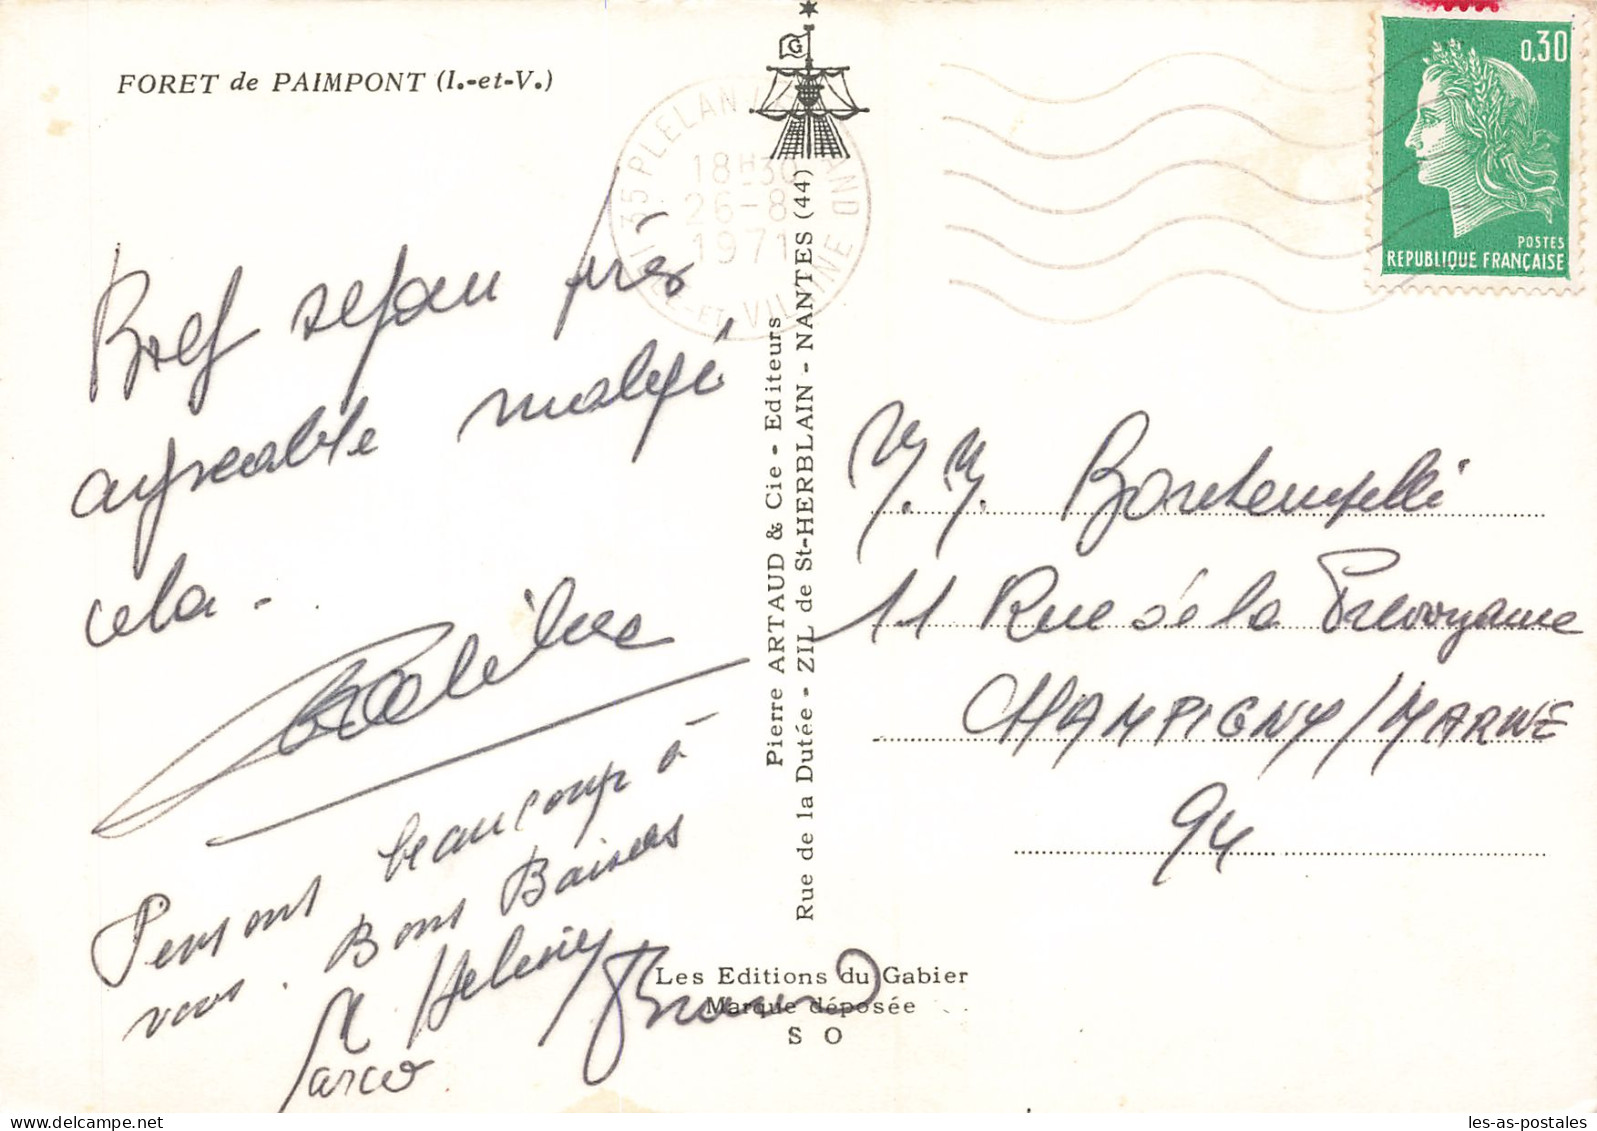 FORET de PAIMPONT (I.-et-V.)
Bref séjour très
agréable malgré
cela -
Pensons beaucoup à
vous. Bons Baisers
G
35 PLELAN
18H30
26-8
1971
ILLE-ET-VILAINE
Pierre ARTAUD & Cie - Editeurs
Rue de la Dutée - ZIL de St-HERBLAIN - NANTES (44)
Les Editions du Gabier
Marque déposée
S O
0,30
POSTES
REPUBLIQUE FRANÇAISE
M. M. Bontempelli
11 Rue de la Prévoyance
CHAMPIGNY/MARNE
94
les-as-postales